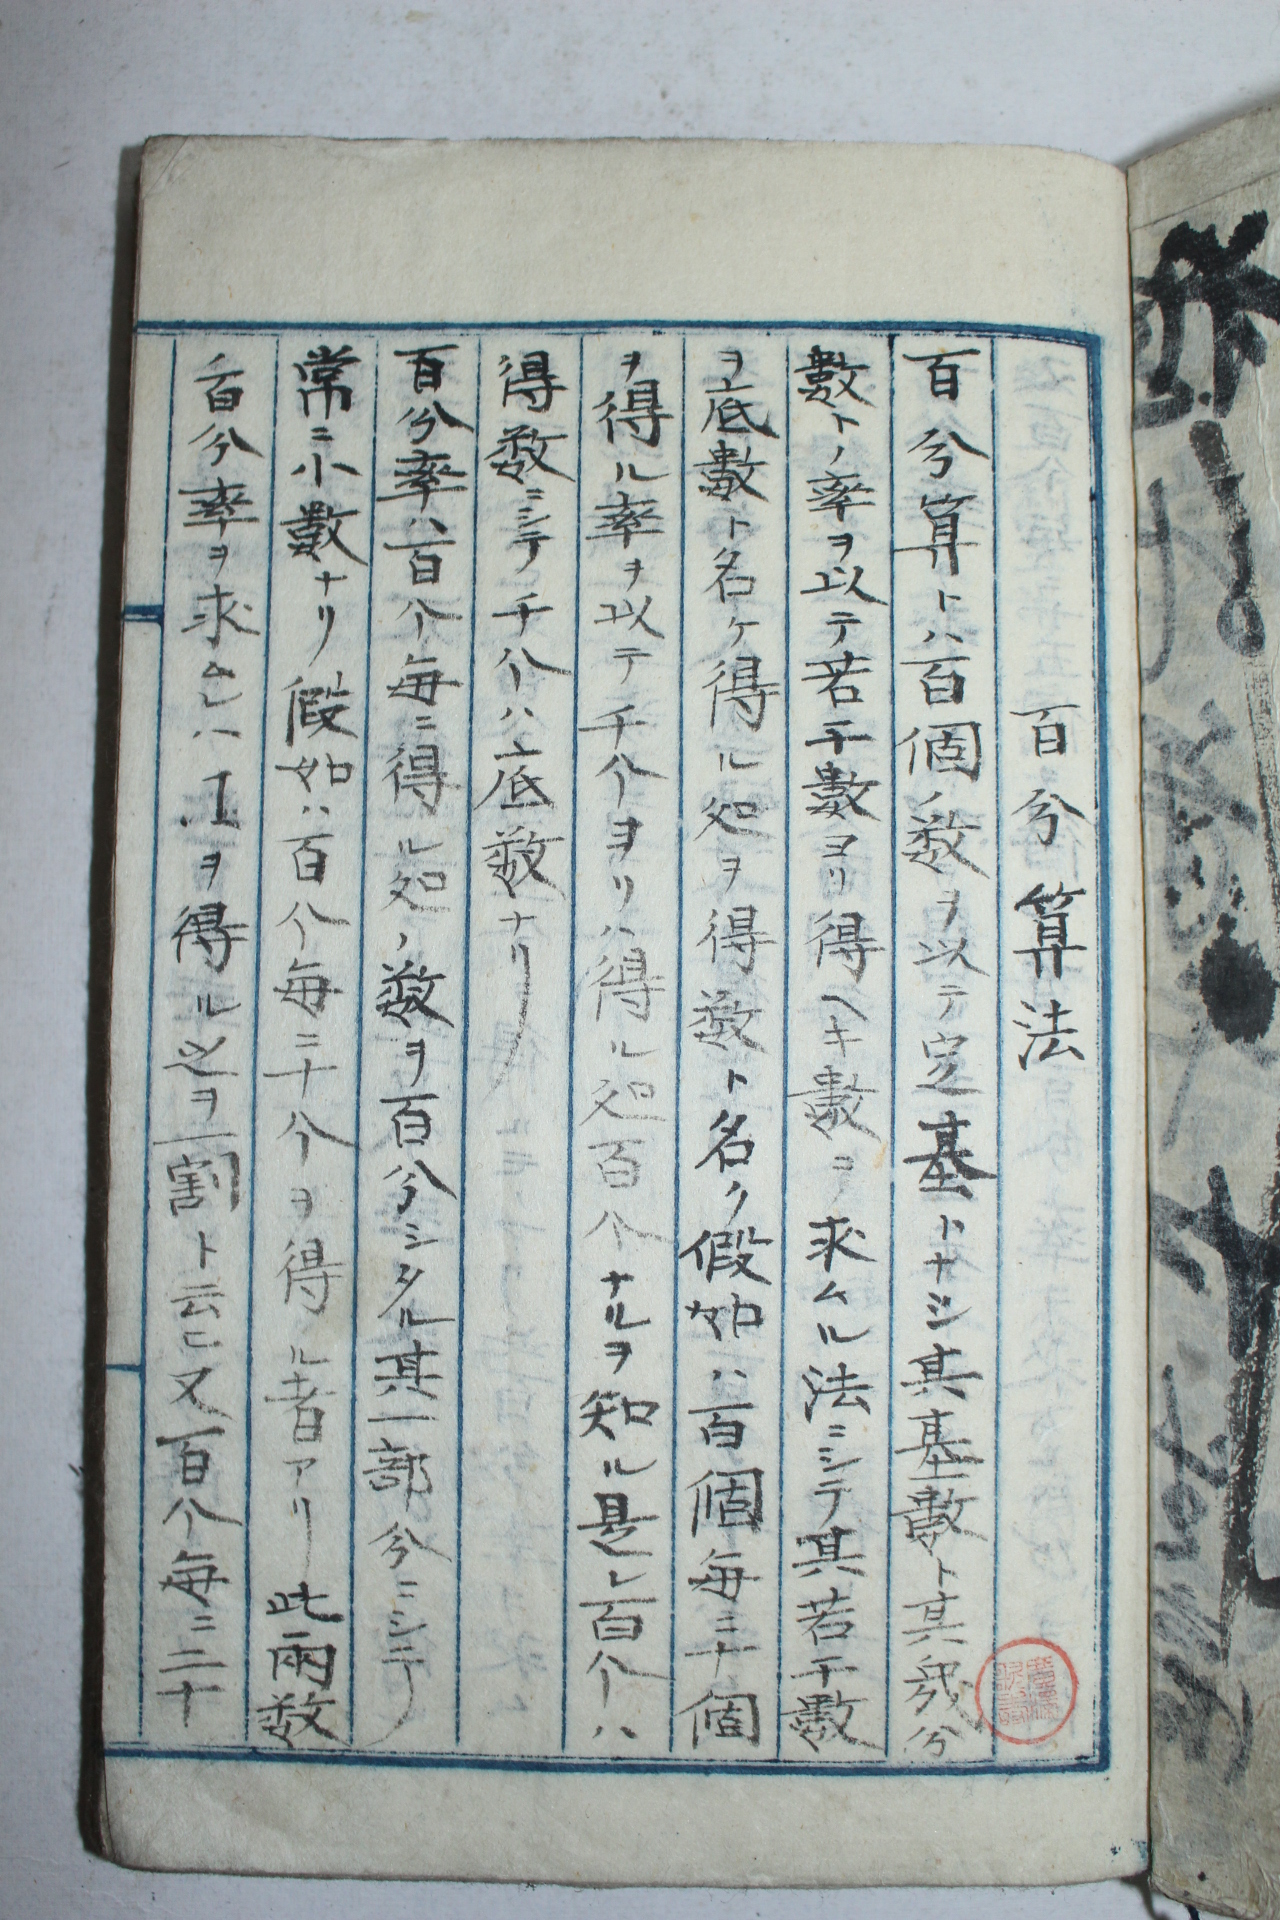 百分算法
百分算トハ百個ノ数ヲ以テ定基トナシ其基數ト其幾分
數トノ率ヲ以テ若干數ヨリ得ヘキ數ヲ求ムル法ニシテ其若干數
ヲ底數ト名ケ得ル処ヲ得数ト名ク假如ハ百個毎ニ十個
ヲ得ル率ヲ以テ千个ヨリハ得ル処百个ナルヲ知ル是レ百个ハ
得数ニシテ千个ハ底数ナリ
百分率ハ百个毎ニ得ル処ノ数ヲ百分シタル其一部分ニシテ
常ニ小數ナリ假如ハ百个毎ニ十个ヲ得ル者アリ此兩数
ノ百分率ヲ求ムレハ.1ヲ得ル必ヲ一割ト云ヒ又百个毎ニ二十